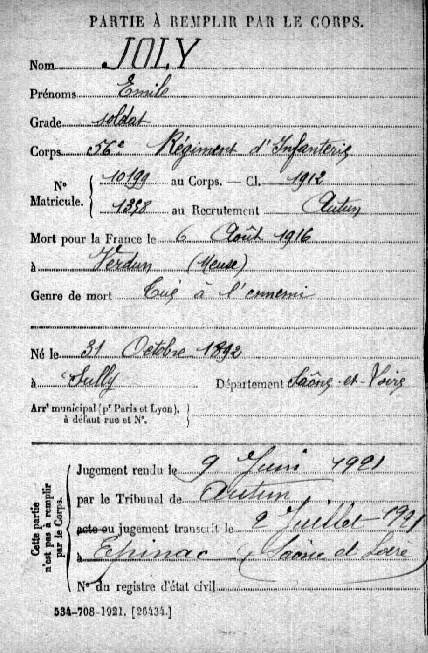 PARTIE À REMPLIR PAR LE CORPS.
Nom JOLY
Prénoms Emile
Grade soldat
Corps 56e Régiment d'Infanterie
N° Matricule. { 10199 au Corps. — Cl. 1912
1398 au Recrutement Autun
Mort pour la France le 6 Août 1916
à Verdun (Meuse)
Genre de mort Tué à l'ennemi
Né le 31 Octobre 1892
à Sully Département Saône-et-Loire
Arrt municipal (pr Paris et Lyon), à défaut rue et N°. }
Cette partie n'est pas à remplir par le Corps.
Jugement rendu le 9 Juin 1921
par le Tribunal de Autun
acte ou jugement transcrit le 2 Juillet 1921
à Epinac Saône et Loire
N° du registre d'état civil
534-708-1921. [26434.]